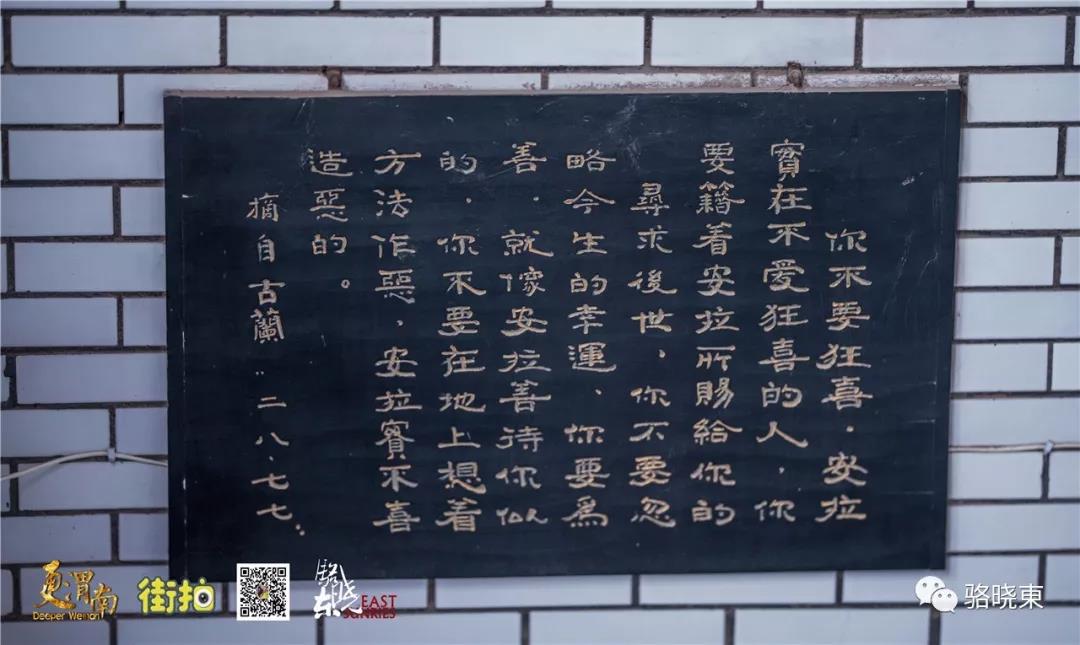 你不要狂喜．安拉
實在不愛狂喜的人，你
要籍着安拉所賜給你的
尋求後世，你不要忽
略今生的幸運、你要爲
善．就像安拉善待你似
的．你不要在地上想着
方法作惡，安拉實不喜
造惡的。
摘自古蘭"二八、七七．
更·渭南
Deeper Weinan
街拍
骆晓东
EAST
SUNRIES
骆晓東